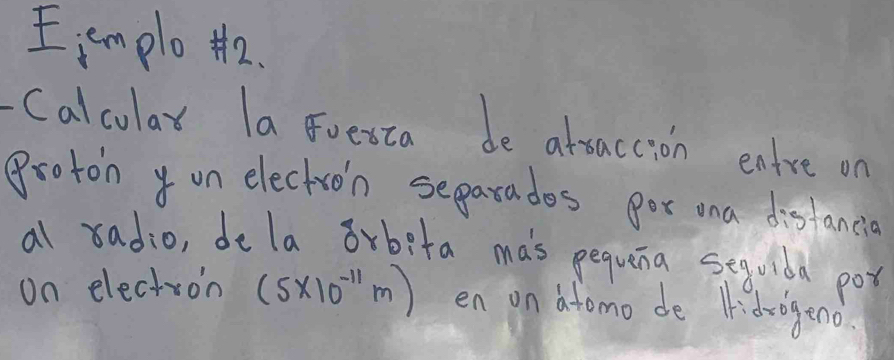 Ejemplo #2.
- Calcular la Fuerza de atracción entre un
Protón y un electrón separados por una distancia
al radio, de la órbita más pequeña seguida por
Un electrón (5x10⁻¹¹ m) en un átomo de Hidrógeno.